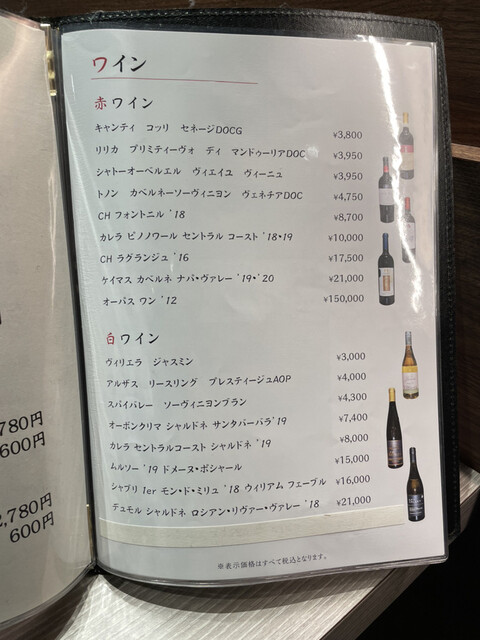 ワイン
赤ワイン
キャンティ コッリ セネージDOCG ¥3,800
リリカ プリミティーヴォ ディ マンドゥーリアDOC ¥3,950
シャトーオーベルエル ヴィエイユ ヴィーニュ ¥3,950
トノン カベルネーソーヴィニヨン ヴェネチアDOC ¥4,750
CH フォントニル '18 ¥8,700
カレラ ピノノワール セントラル コースト '18・19 ¥10,000
CH ラグランジュ '16 ¥17,500
ケイマス カベルネ ナパ・ヴァレー '19・'20 ¥21,000
オーパス ワン '12 ¥150,000
白ワイン
ヴィリエラ ジャスミン ¥3,000
アルザス リースリング プレスティージュAOP ¥4,000
スパイバレー ソーヴィニヨンブラン ¥4,300
オーボンクリマ シャルドネ サンタバーバラ'19 ¥7,400
カレラ セントラルコースト シャルドネ '19 ¥8,000
ムルソー '19 ドメーヌ・ポシャール ¥15,000
シャブリ 1er モン・ド・ミリュ '18 ウィリアム フェーブル ¥16,000
デュモル シャルドネ ロシアン・リヴァー・ヴァレー '18 ¥21,000
※表示価格はすべて税込となります。
780円
600円
2,780円
600円